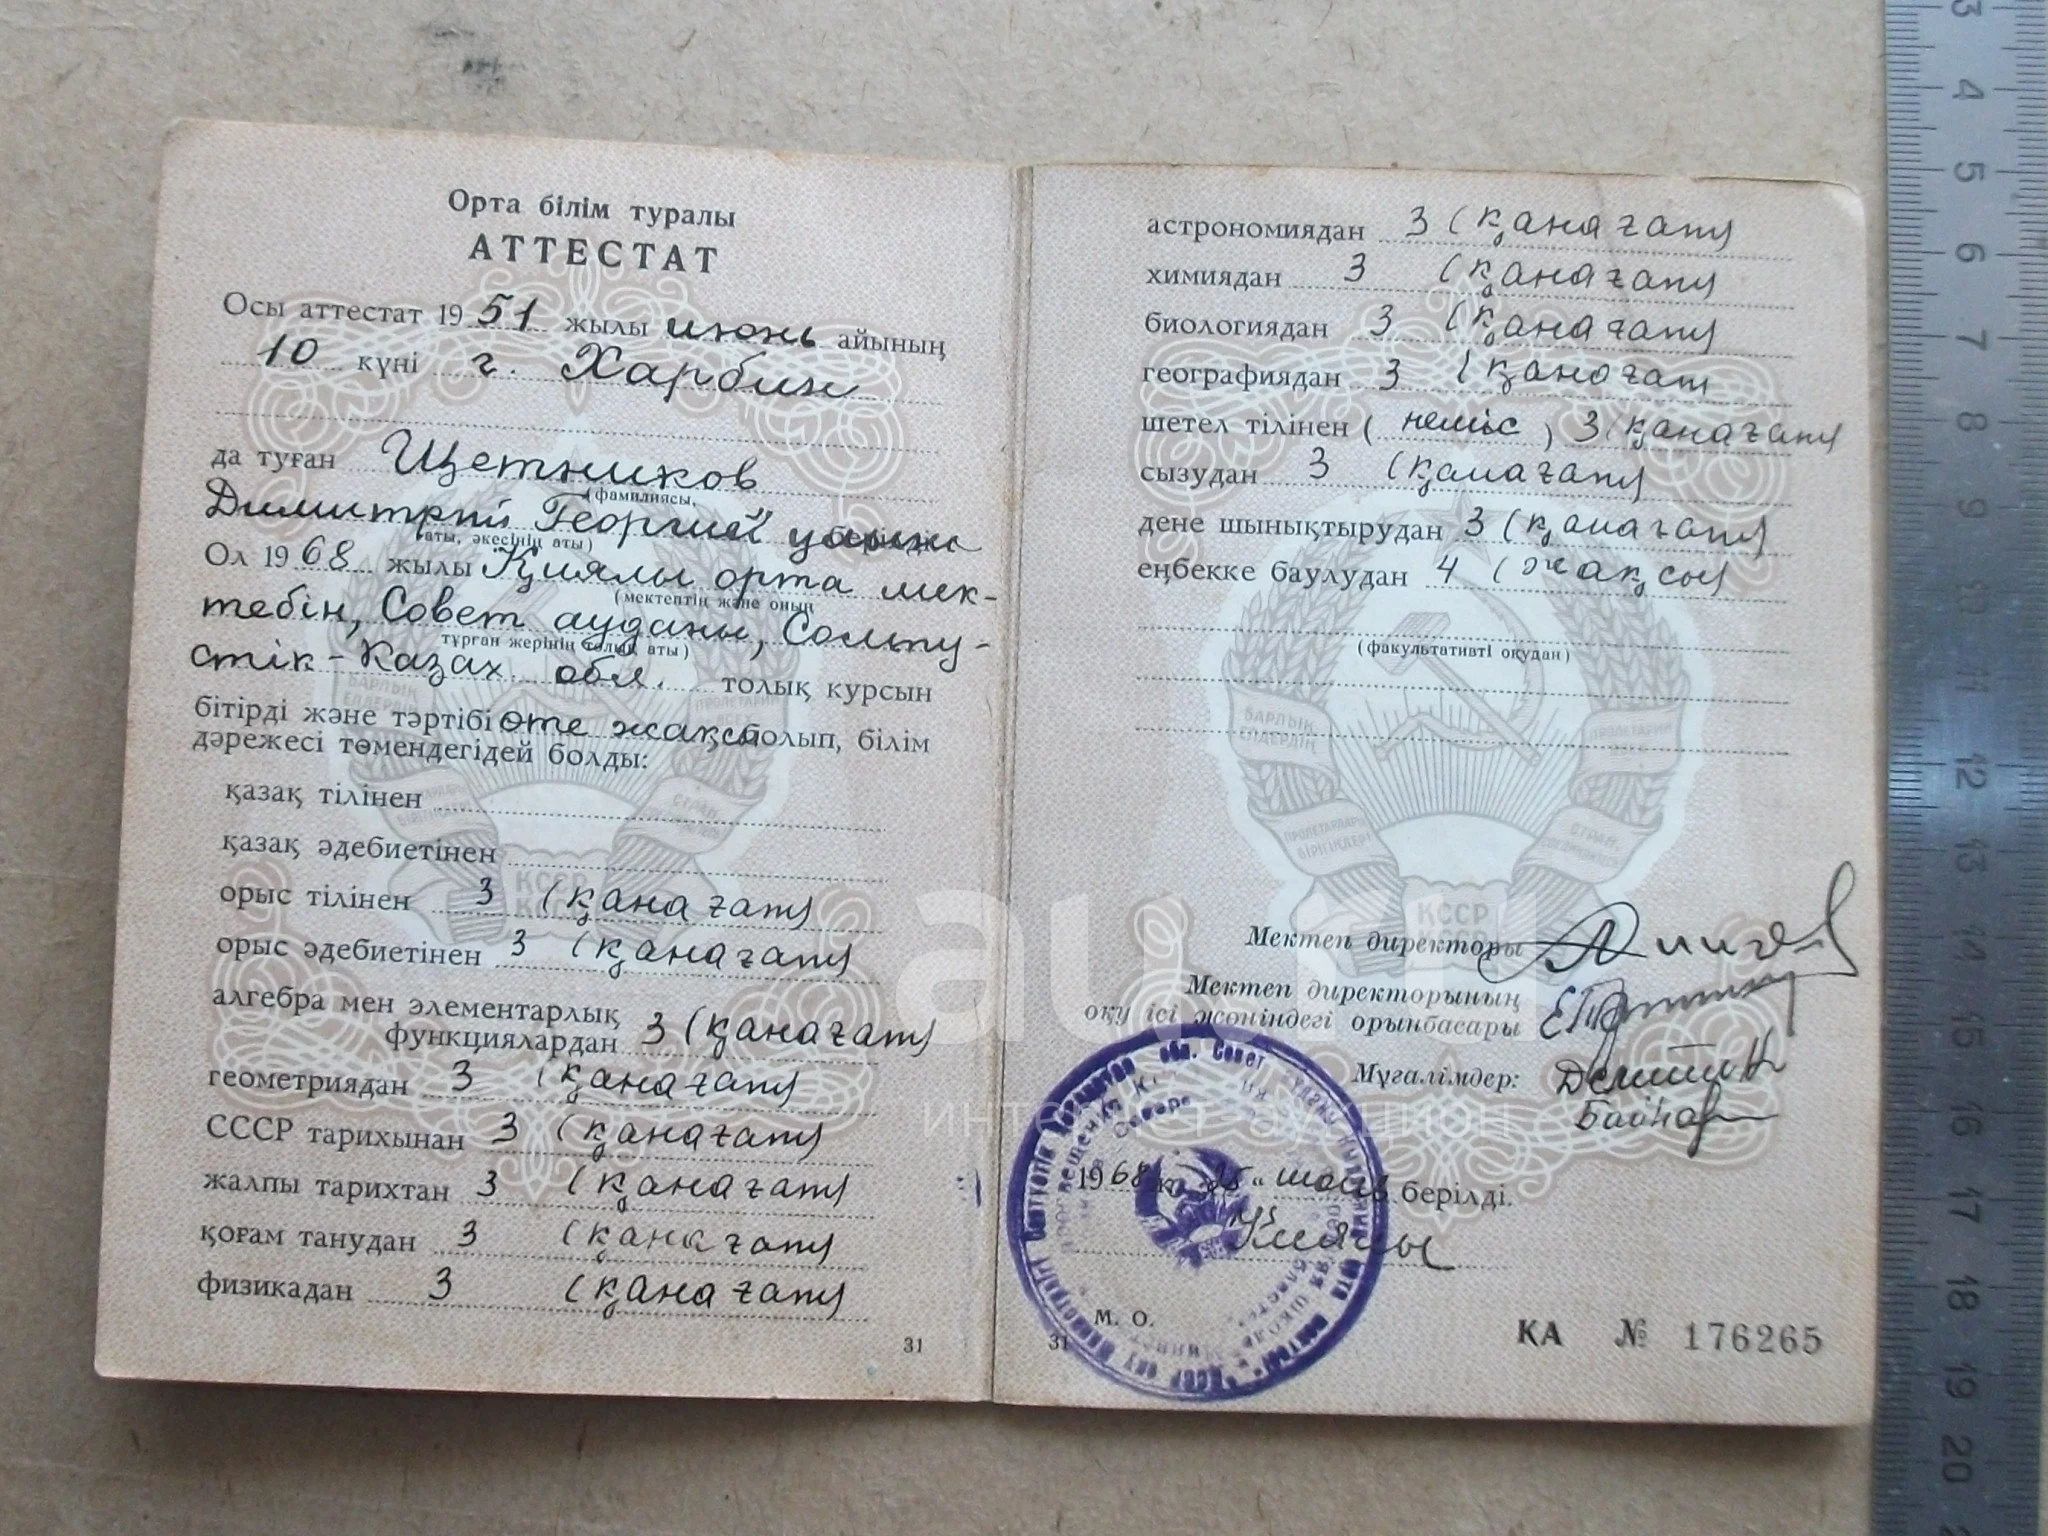 Орта білім туралы
АТТЕСТАТ
Осы аттестат 1951 жылы июнь айының
10 күні г. Харбин
да туған Щетников
(фамилиясы,
Димитрий Георгий
аты, әкесінің аты)
Ол 1968 жылы Қиялы орта мек-
(мектептің және оның
тебін, Совет ауданы, Солтү-
тұрған жерінің толық аты)
стік-Казах обл. толық курсын
бітірді және тәртібі өте жақсы болып, білім
дәрежесі төмендегідей болды:
қазақ тілінен
қазақ әдебиетінен
орыс тілінен 3 (қанағат)
орыс әдебиетінен 3 (қанағат)
алгебра мен элементарлық
функциялардан 3 (қанағат)
геометриядан 3 (қанағат)
СССР тарихынан 3 (қанағат)
жалпы тарихтан 3 (қанағат)
қоғам танудан 3 (қанағат)
физикадан 3 (қанағат)
31
астрономиядан 3 (қанағат)
химиядан 3 (қанағат)
биологиядан 3 (қанағат)
географиядан 3 (қанағат
шетел тілінен (неміс) 3 (қанағат)
сызудан 3 (қанағат)
дене шынықтырудан 3 (қанағат)
еңбекке баулудан 4 (жақсы)
(факультативті оқудан)
БАРЛЫҚ ЕЛДЕРДІҢ
ПРОЛЕТАРИИ
ПРОЛЕТАРЛАРЫ БІРІГІҢДЕР!
ҚССР
au.ru
интернет аукцион
Мектеп директоры
Мектеп директорының
оқу ісі жөніндегі орынбасары
Мұғалімдер:
1968 ж. 25 " берілді.
Қиялы
М. О.
31
КА № 176265
3 4 5 6 7 8 9 10 11 12 13 14 15 16 17 18 19 20